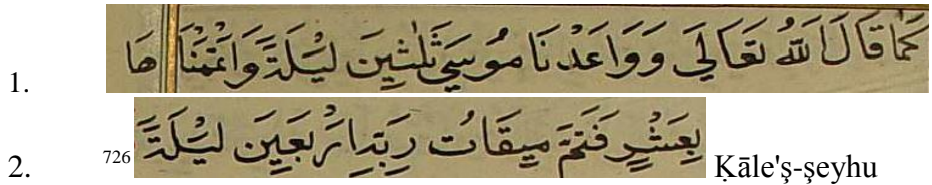 1. كَمَا قَالَ اللّٰهُ تَعَالَي وَوَاعَدْنَا مُوسَي ثَلٰثِينَ لَيْلَةً وَاَتْمَمْنَا هَا
2. بِعَشْرٍ فَتَمَّ مِيقَاتُ رَبِّهِ اَرْبَعِينَ لَيْلَةً 726 Ḳāle'ş-şeyhu